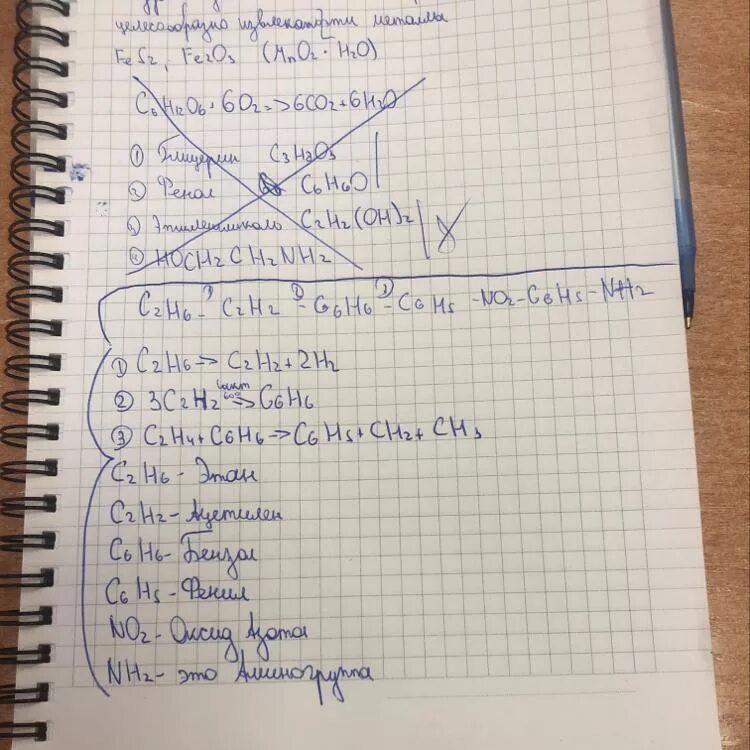 целесообразно извлекать эти металлы
FeS2, Fe2O3 (MnO2 · H2O)
C6H12O6 + 6O2 => 6CO2 + 6H2O
① Глицерин C3H8O3
② Фенол C6H6O
③ Этиленгликоль C2H2(OH)2
④ HOCH2CH2NH2
C2H6 - C2H2 - C6H6 - C6H5 -NO2-C6H5-NH2
① C2H6 -> C2H2 + 2H2
② 3C2H2 => C6H6
③ C2H4 + C6H6 -> C6H5 + CH2 + CH3
C2H6 - Этан
C2H2 - Ацетилен
C6H6 - Бензол
C6H5 - Фенил
NO2 - Оксид Азота
NH2 - это Аминогруппа